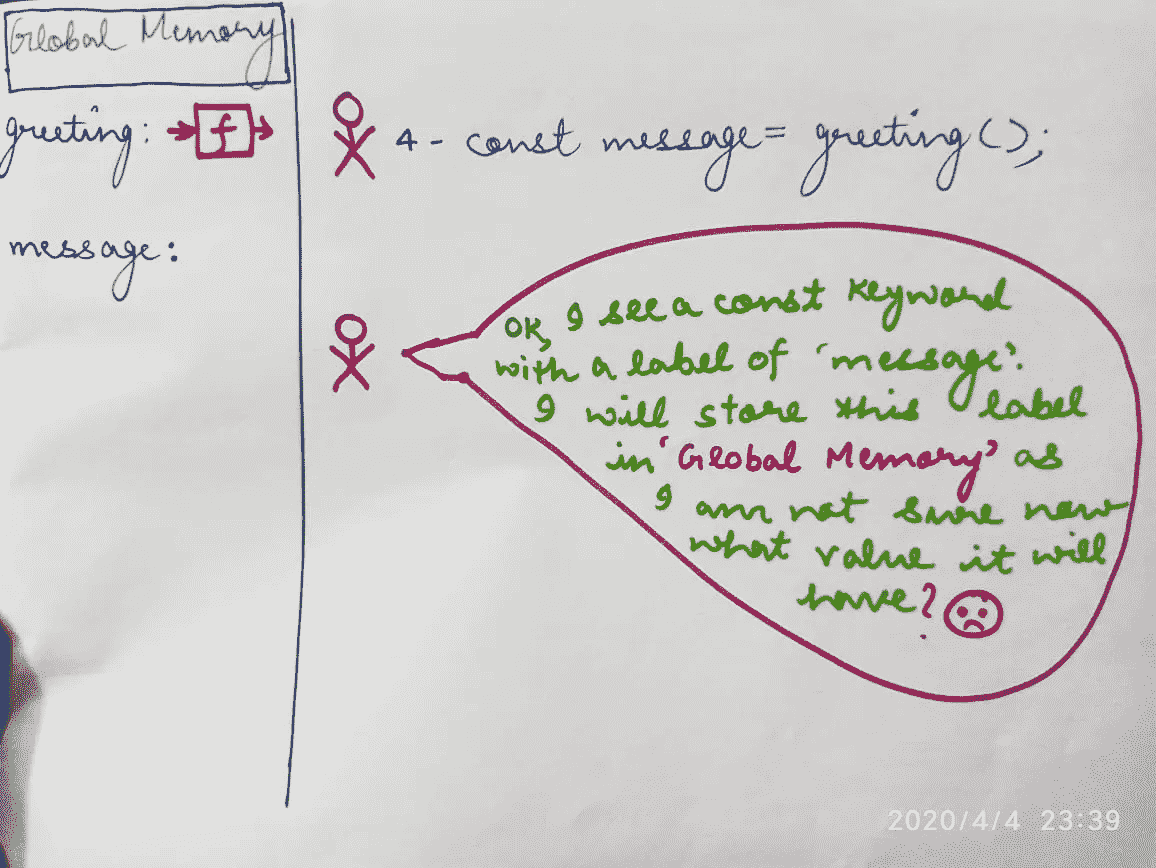 Global Memory
greeting: f
message:
4 - const message = greeting();
OK, I see a const keyword
with a label of 'message'.
I will store this label
in 'Global Memory' as
I am not sure now
what value it will
have?
2020/4/4 23:39